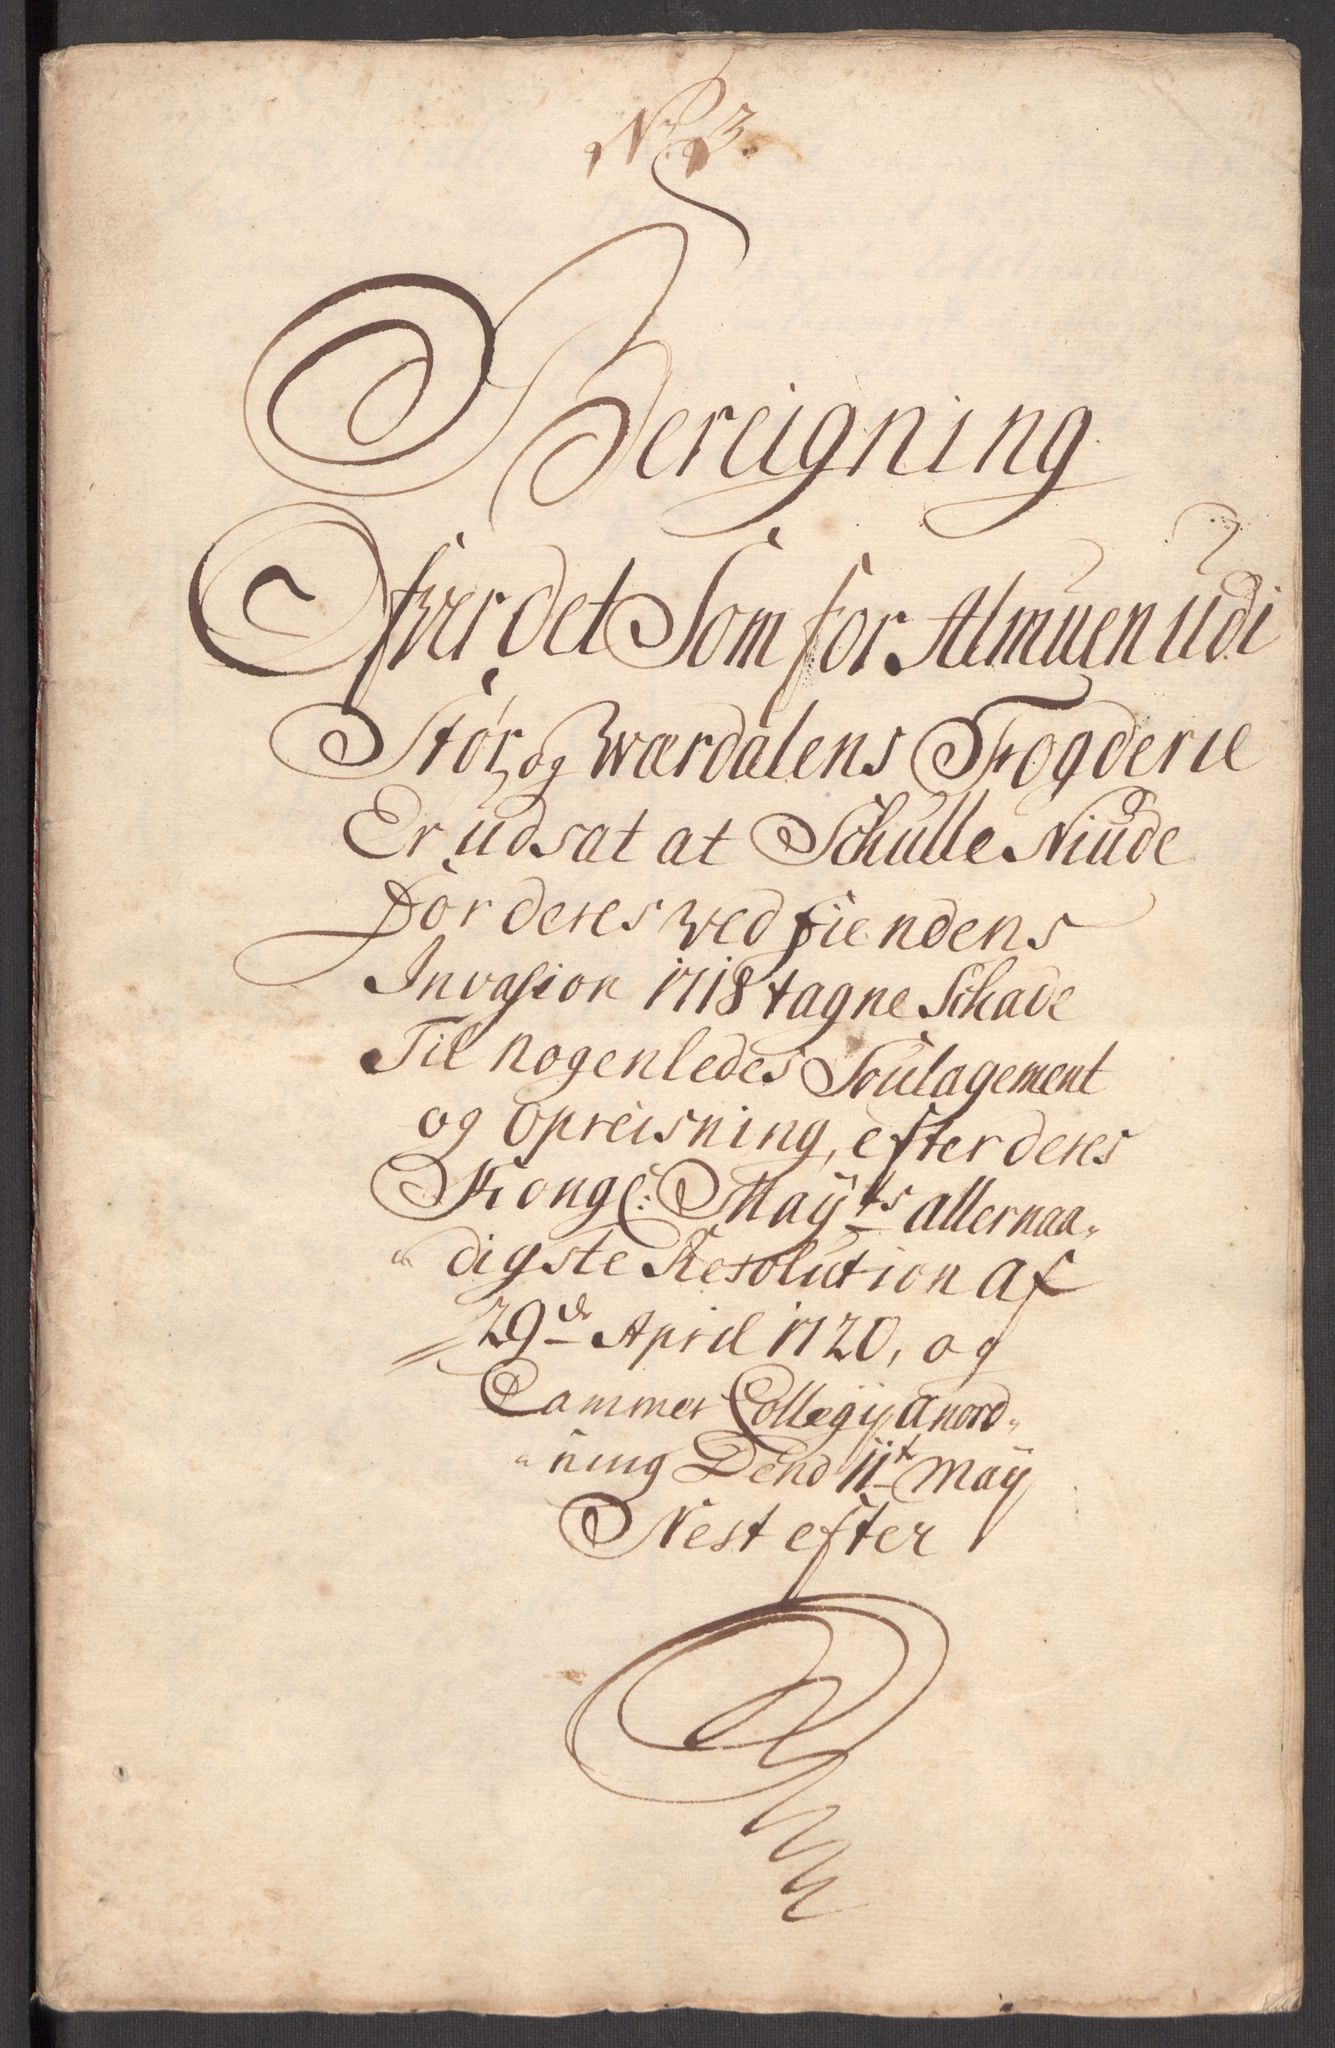 No 3.
Bereigning
Ofver det Som for Almuen udi
Stör, og Værdalens Fogderie
Er udsat at Schulle Niude
for deres ved fiendens
Invasion 1718 tagne Schade
Til nogenledes Soulagement
og Opreisning, efter deres
Kongl: Mayts allernaa„
„digste Resolution af
29de April 1720, og
Cammer Collegij anord„
„ning Dend 11t May
Nest efter